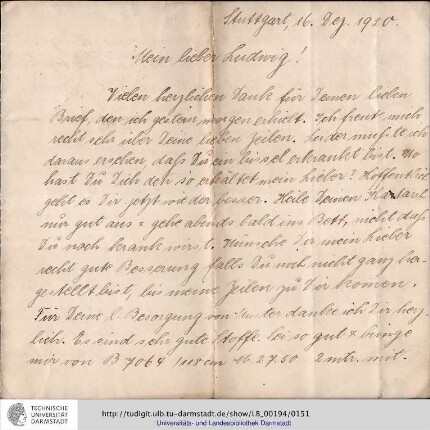 Stuttgart, 16. Dez. 1920.
Mein lieber Ludwig!
Vielen herzlichen Dank für Deinen lieben
Brief, den ich gestern morgen erhielt. Ich freute mich
recht sehr über Deine lieben Zeilen. Leider mußte ich
daraus ersehen, daß Du ein bissel erkrankt bist. Wo
hast Du Dich denn so erkältet mein lieber? Hoffentlich
geht es Dir jetzt wieder besser. Heile Deinen Katarrh
nur gut aus & gehe abends bald ins Bett, nicht daß
Du noch krank wirst. Wünsche Dir mein lieber
recht gute Besserung falls Du noch nicht ganz her-
gestellt bist, bis meine Zeilen zu Dir kommen.
Für Deine l. Besorgung von Muster danke ich Dir herz-
lich. Es sind sehr gute Stoffe. Sei so gut & bringe
mir von B 7064 118 cm M. 27.50 2 mtr. mit.
TECHNISCHE
UNIVERSITÄT
DARMSTADT
http://tudigit.ulb.tu-darmstadt.de/show/LB_00194/0151
Universitäts- und Landesbibliothek Darmstadt